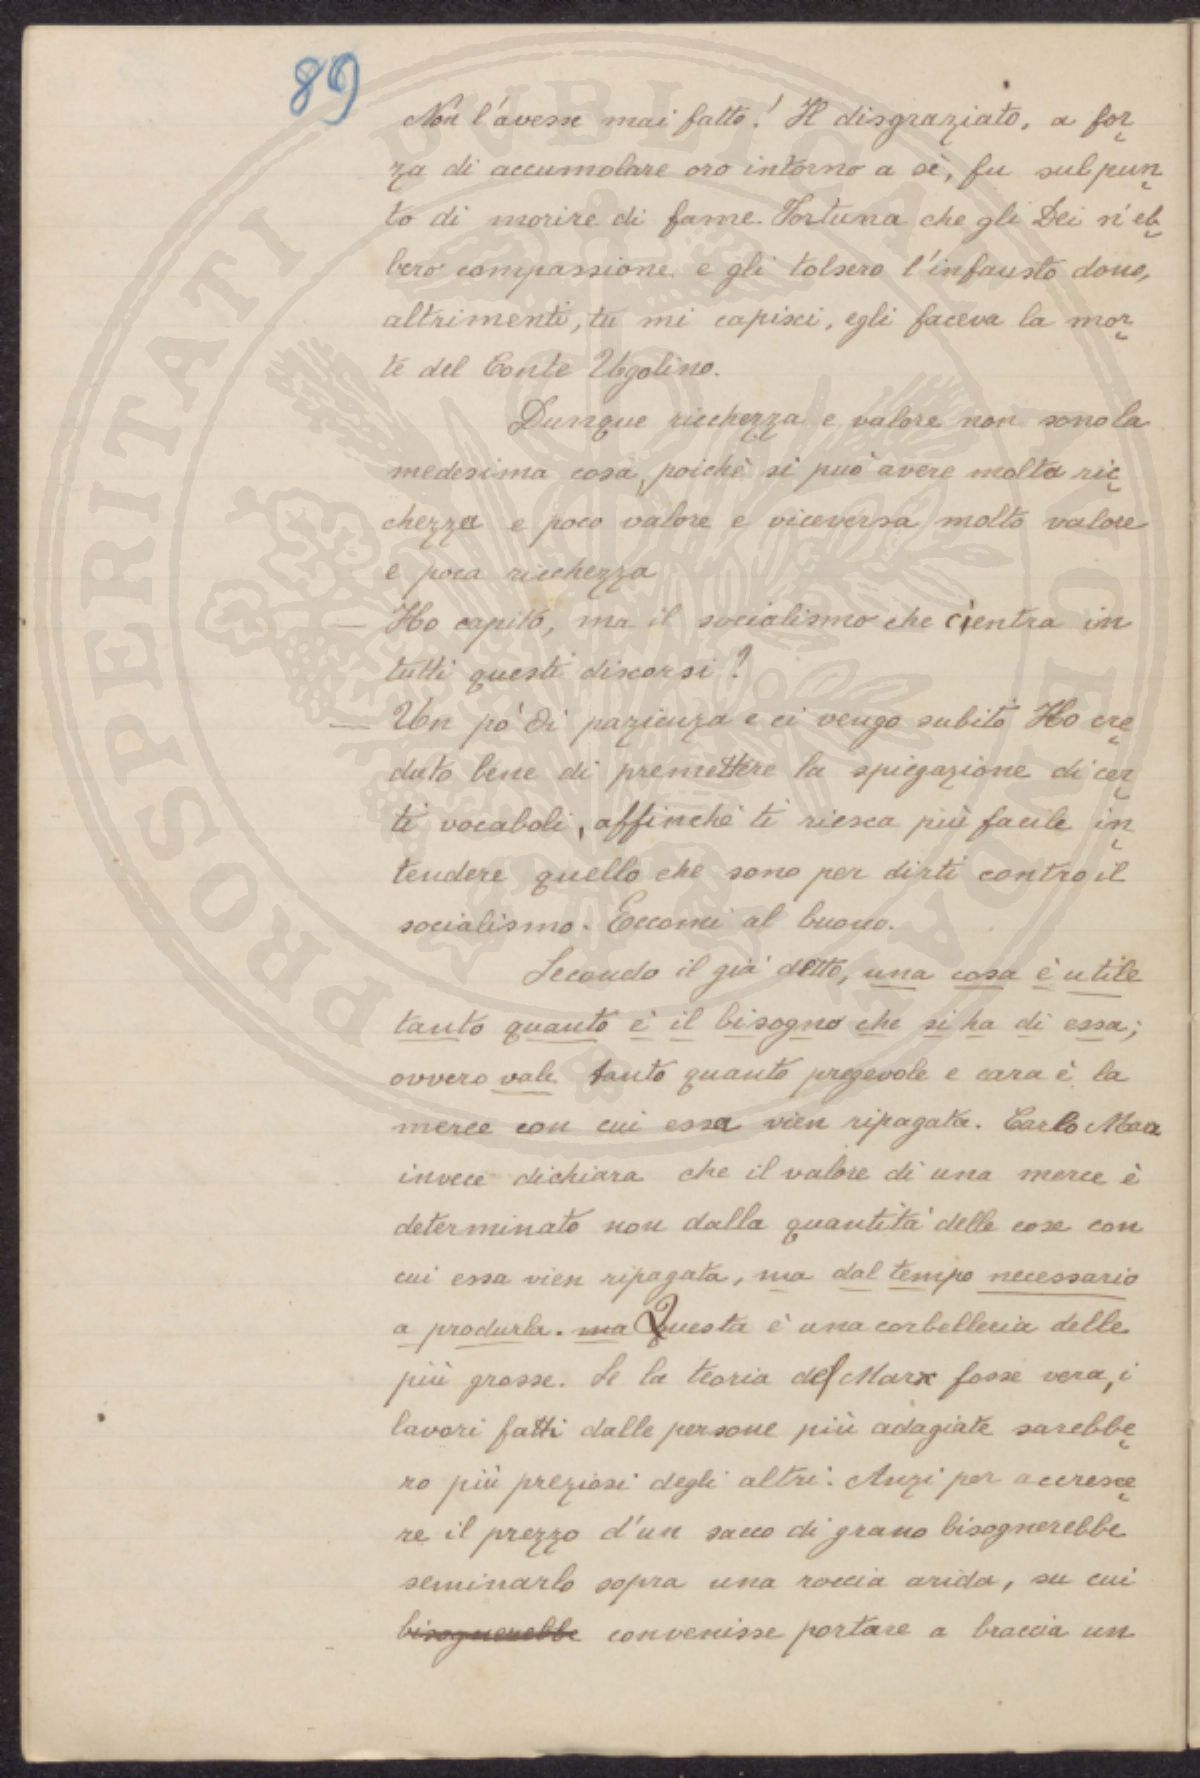 89
Non l'avesse mai fatto! Il disgraziato, a for
za di accumolare oro intorno a sè, fu sul pun
to di morire di fame. Fortuna che gli Dei n'eb
bero compassione e gli tolsero l'infausto dono,
altrimenti, tu mi capisci, egli faceva la mor
te del Conte Ugolino.
Dunque ricchezza e valore non sono la
medesima cosa, poichè si può avere molta ric
chezza e poco valore e viceversa molto valore
e poca ricchezza
— Ho capito, ma il socialismo che c'entra in
tutti questi discorsi?
— Un pò di pazienza e ci vengo subito Ho cre
duto bene di premettere la spiegazione di cer
ti vocaboli, affinchè ti riesca più facile in
tendere quello che sono per dirti contro il
socialismo. Eccomi al buono.
Secondo il già detto, una cosa è utile
tanto quanto è il bisogno che si ha di essa;
ovvero vale tanto quanto pregevole e cara è la
merce con cui essa vien ripagata. Carlo Marx
invece dichiara che il valore di una merce è
determinato non dalla quantità delle cose con
cui essa vien ripagata, ma dal tempo necessario
a produrla. ma Questa è una corbelleria delle
più grosse. Se la teoria del Marx fosse vera, i
lavori fatti dalle persone più adagiate sarebbe
ro più preziosi degli altri. Anzi per accresce
re il prezzo d'un sacco di grano bisognerebbe
seminarlo sopra una roccia arida, su cui
bisognerebbe convenisse portare a braccia un
PROSPERITATI PUBLICAE AUGENDAE